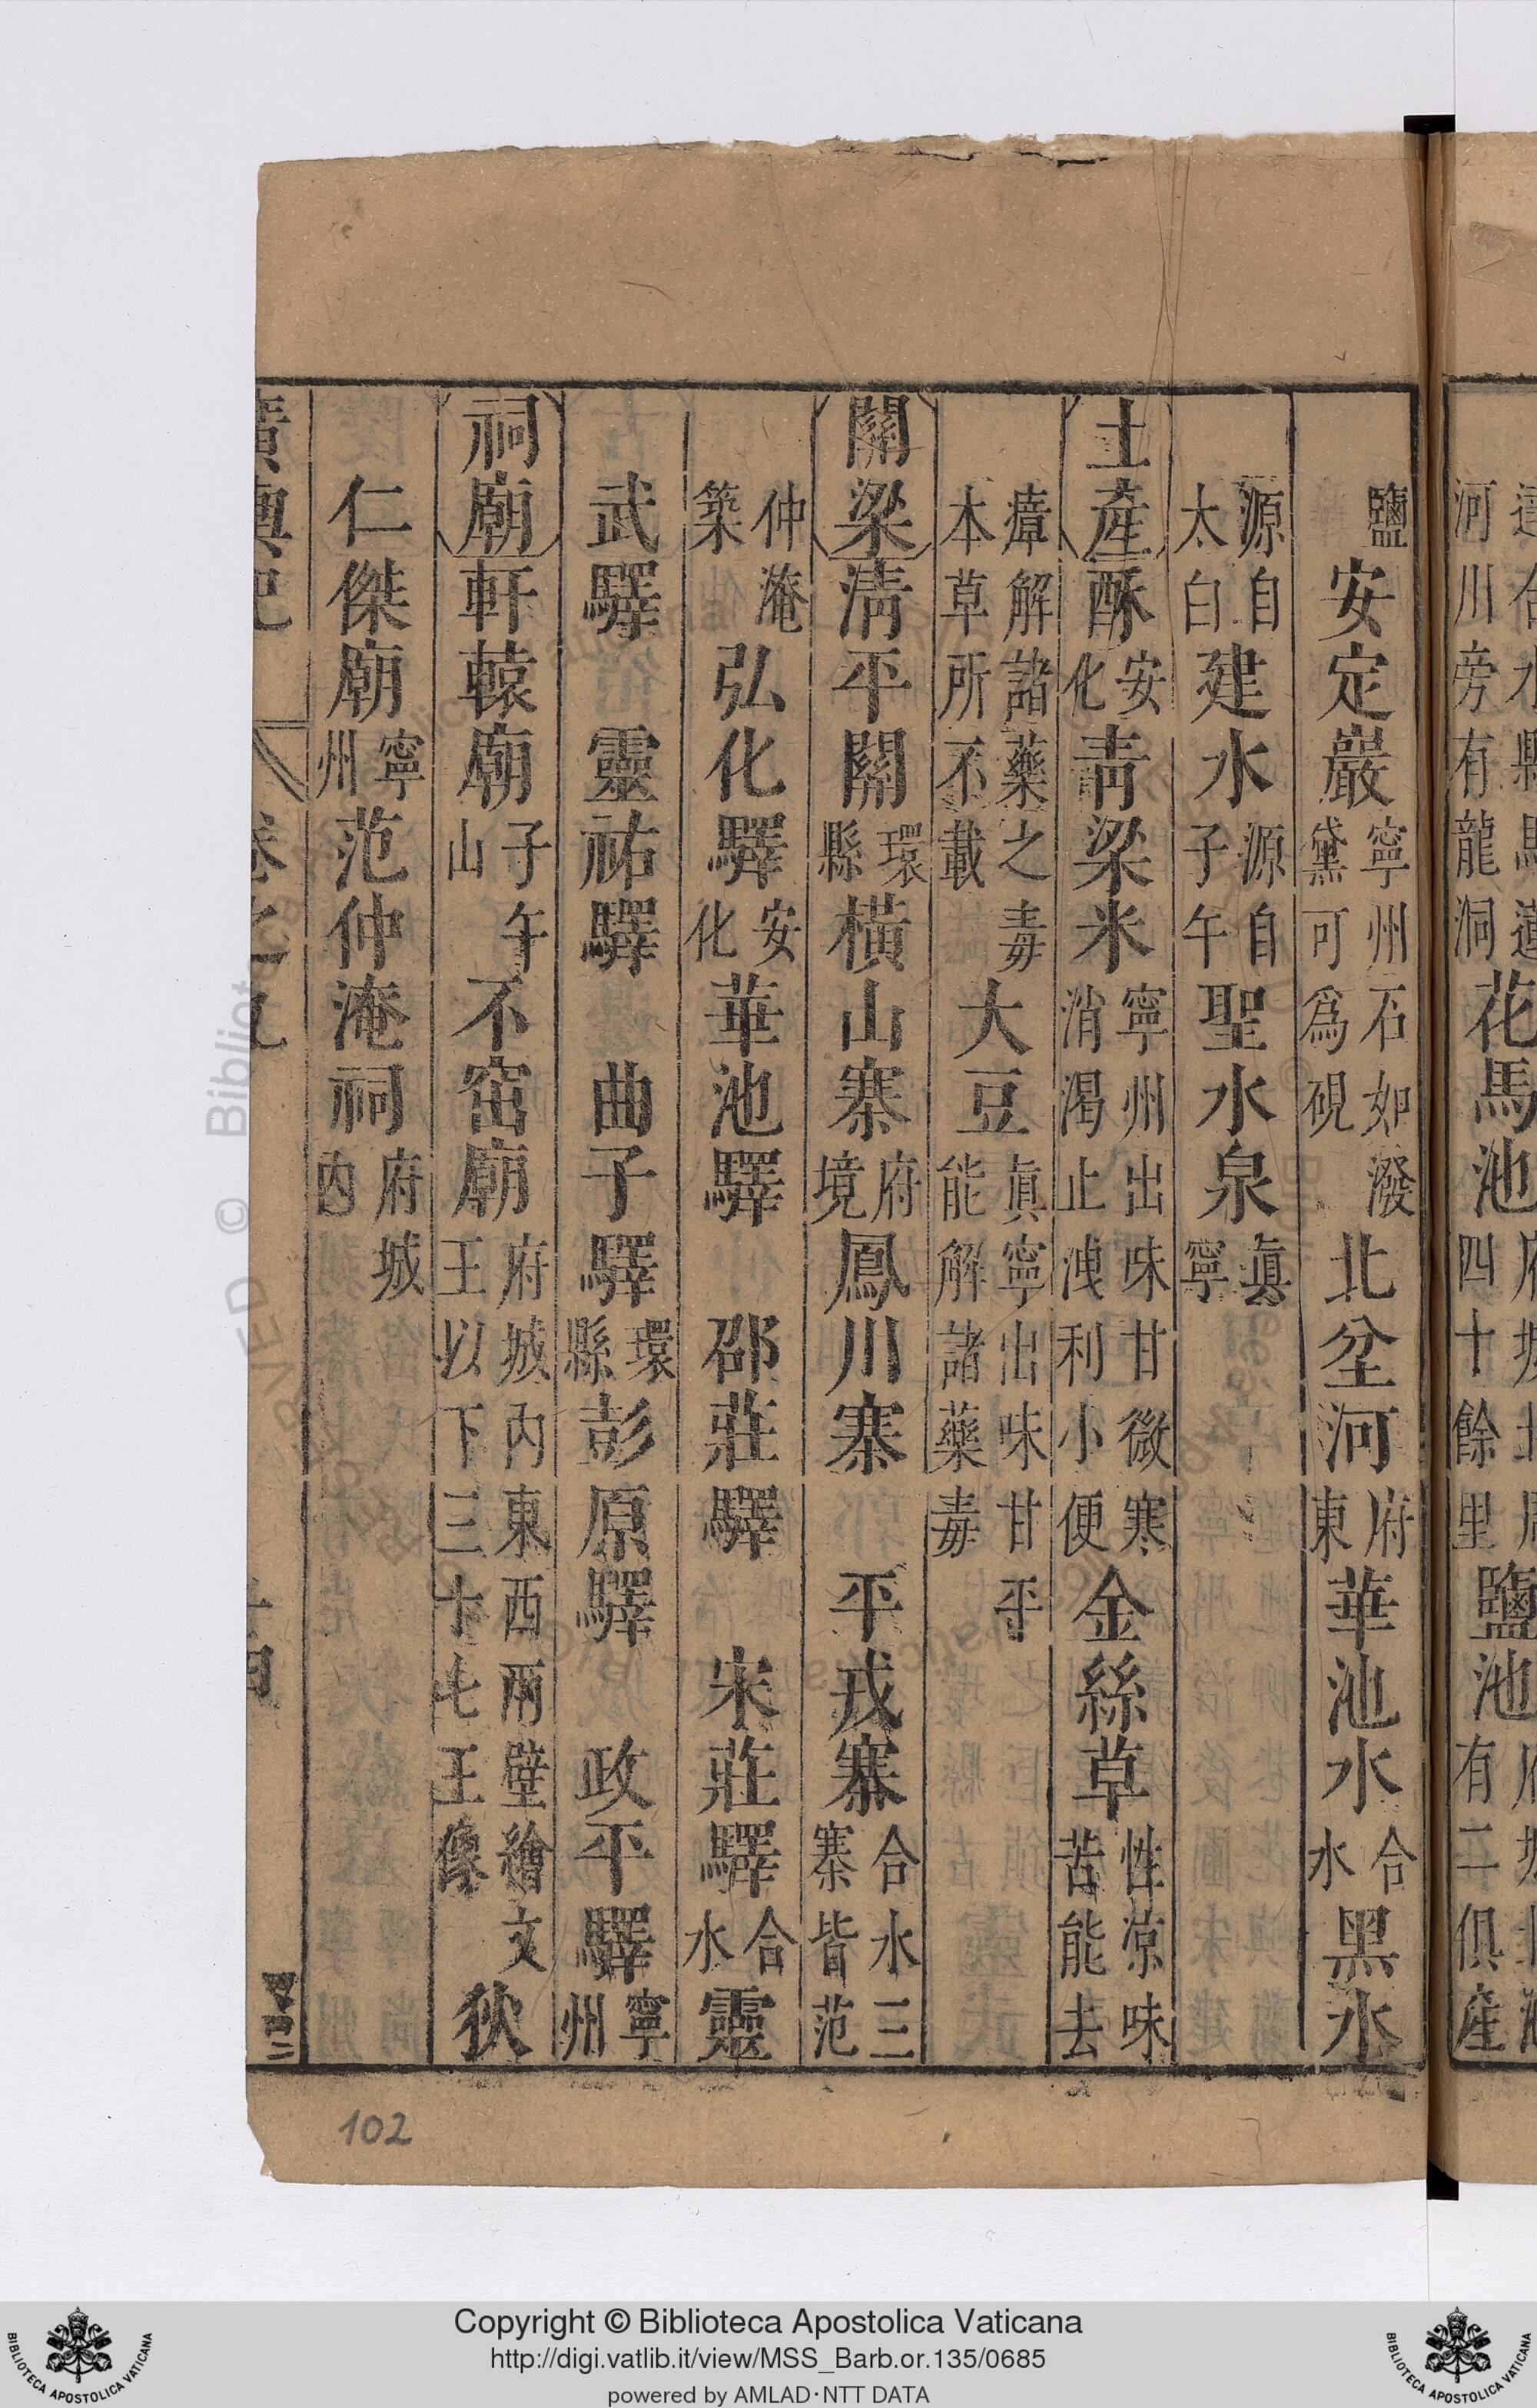 鹽安定巖寧州石如潑黛可爲硯北坌河府東華池水合水黑水
源自太白建水源自子午聖水泉眞寧
土產酥安化靑梁米寧州出味甘微寒消渴止洩利小便金絲草性凉味苦能去
瘴解諸藥之毒本草所不載大豆眞寧出味甘平能解諸藥毒
關梁淸平關環縣橫山寨府境鳳川寨平戎寨合水三寨皆范
仲淹築弘化驛安化華池驛邵莊驛宋莊驛合水靈
武驛靈祐驛曲子驛環縣彭原驛政平驛寧州
祠廟軒轅廟子午山不窋廟府城內東西兩壁繪文王以下三十七王像狄
仁傑廟寧州范仲淹祠府城內
102
Copyright © Biblioteca Apostolica Vaticana
http://digi.vatlib.it/view/MSS_Barb.or.135/0685
powered by AMLAD·NTT DATA